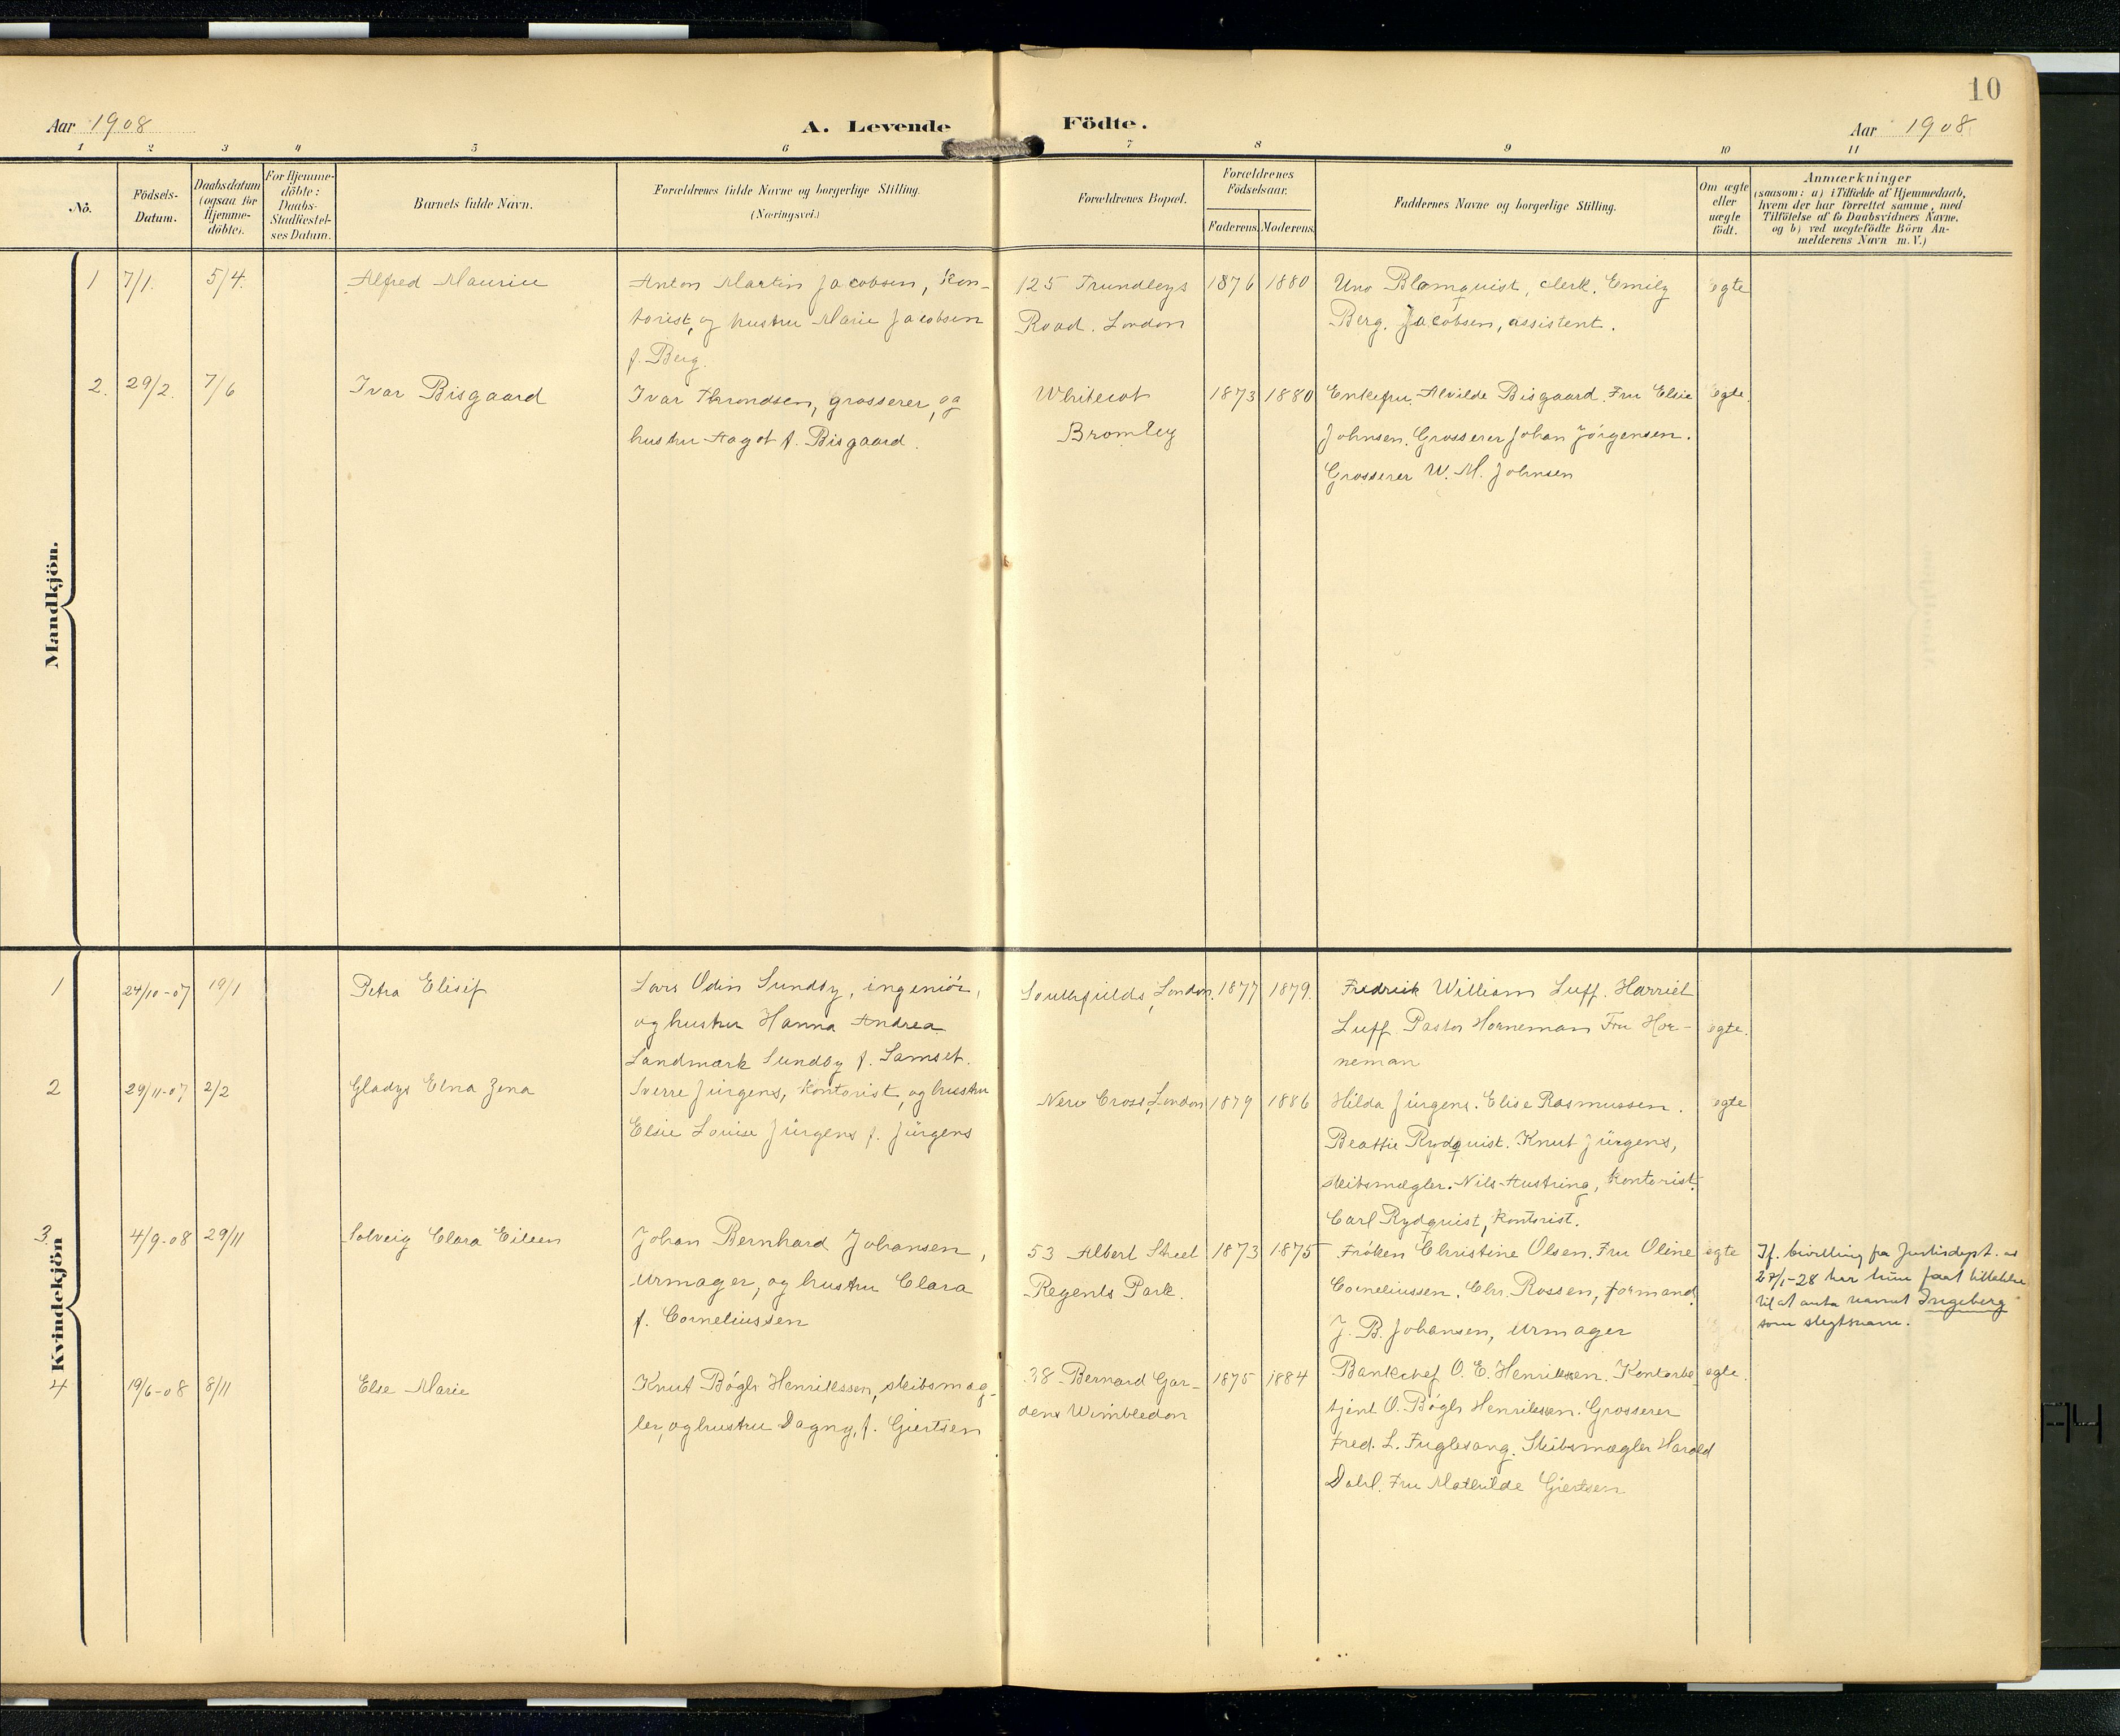 10
Aar 1908
A. Levende Födte.
Aar 1908
1 2 3 4 5 6 7 8 9 10 11
No.
Födsels-
Datum.
Daabsdatum
(ogsaa for
Hjemme-
döbte).
For Hjemme-
döbte:
Daabs-
Stadfæstel-
ses Datum.
Barnets fulde Navn.
Forældrenes fulde Navne og borgerlige Stilling.
(Næringsvei.)
Forældrenes Bopæl.
Forældrenes
Födselsaar.
Faderens. Moderens.
Faddernes Navne og borgerlige Stilling.
Om ægte
eller
uægte
födt.
Anmærkninger
(saasom: a) i Tilfælde af Hjemmedaab,
hvem der har forrettet samme, med
Tilföielse af to Daabsvidners Navne.
og b) ved uægtefödte Börn An-
melderens Navn m. V.)
Mandkjön.
1 7/1. 5/4. Alfred Maurice
Anton Martin Jacobsen, Kon-
torist, og hustru Marie Jacobsen
f. Berg.
125 Trundleys
Road. London
1876 1880
Uno Blomquist, clerk. Emily
Berg. Jacobsen, assistent.
ægte
2. 29/2. 7/6 Ivar Bisgaard
Ivar Throndsen, grosserer, og
hustru Aagot f. Bisgaard.
Whitecot
Bromley
1873 1880
Enkefru Alvilde Bisgaard. Fru Elsie
Johnsen. Grosserer Johan Jörgensen.
Grosserer W. M. Johnsen
ægte.
Kvindekjön
1 24/10-07 19/1 Petra Elisif
Lars Odin Sundby, ingeniör,
og hustru Hanna Andrea
Landmark Sundby f. Samset.
Southfields, London.
1877 1879.
Fredrik William Luff. Harriet
Luff. Pastor Horneman Fru Hor-
neman
ægte.
2 29/11-07 2/2 Gladys Elna Zena
Sverre Jürgens, Kontorist, og hustru
Elsie Louise Jürgens f. Jürgens
New Cross, London
1879 1886
Hilda Jürgens. Elise Rasmussen.
Beattie Rydquist. Knut Jürgens,
skibsmægler. Nils Austring, Kontorist.
Carl Rydquist, Kontorist.
ægte
3. 4/9-08 29/11 Solveig Clara Eileen
Johan Bernhard Johansen,
urmager, og hustru Clara
f. Corneliussen
53 Albert Street
Regents Park.
1873 1875
Fröken Christine Olsen. Fru Oline
Corneliussen. Chr. Rossen, formand.
J. B. Johansen, urmager
ægte
If. bevilling fra Justisdept. av
27/1-28 har hun faat tillatelse
til at anta navnet Ingeberg
som slegtsnavn.
4 19/6-08 8/11 Else Marie
Knut Bögh Henrikssen, skibsmæg-
ler, og hustru Dagny, f. Giertsen
38 Bernard Gar-
dens Wimbledon
1875 1884
Bankchef O. E. Henriksen. Kontorbe-
tjent O. Bögh Henriksen. Grosserer
Fred. L. Fuglesang. Skibsmægler Harald
Dahl. Fru Mathilde Giertsen
ægte.